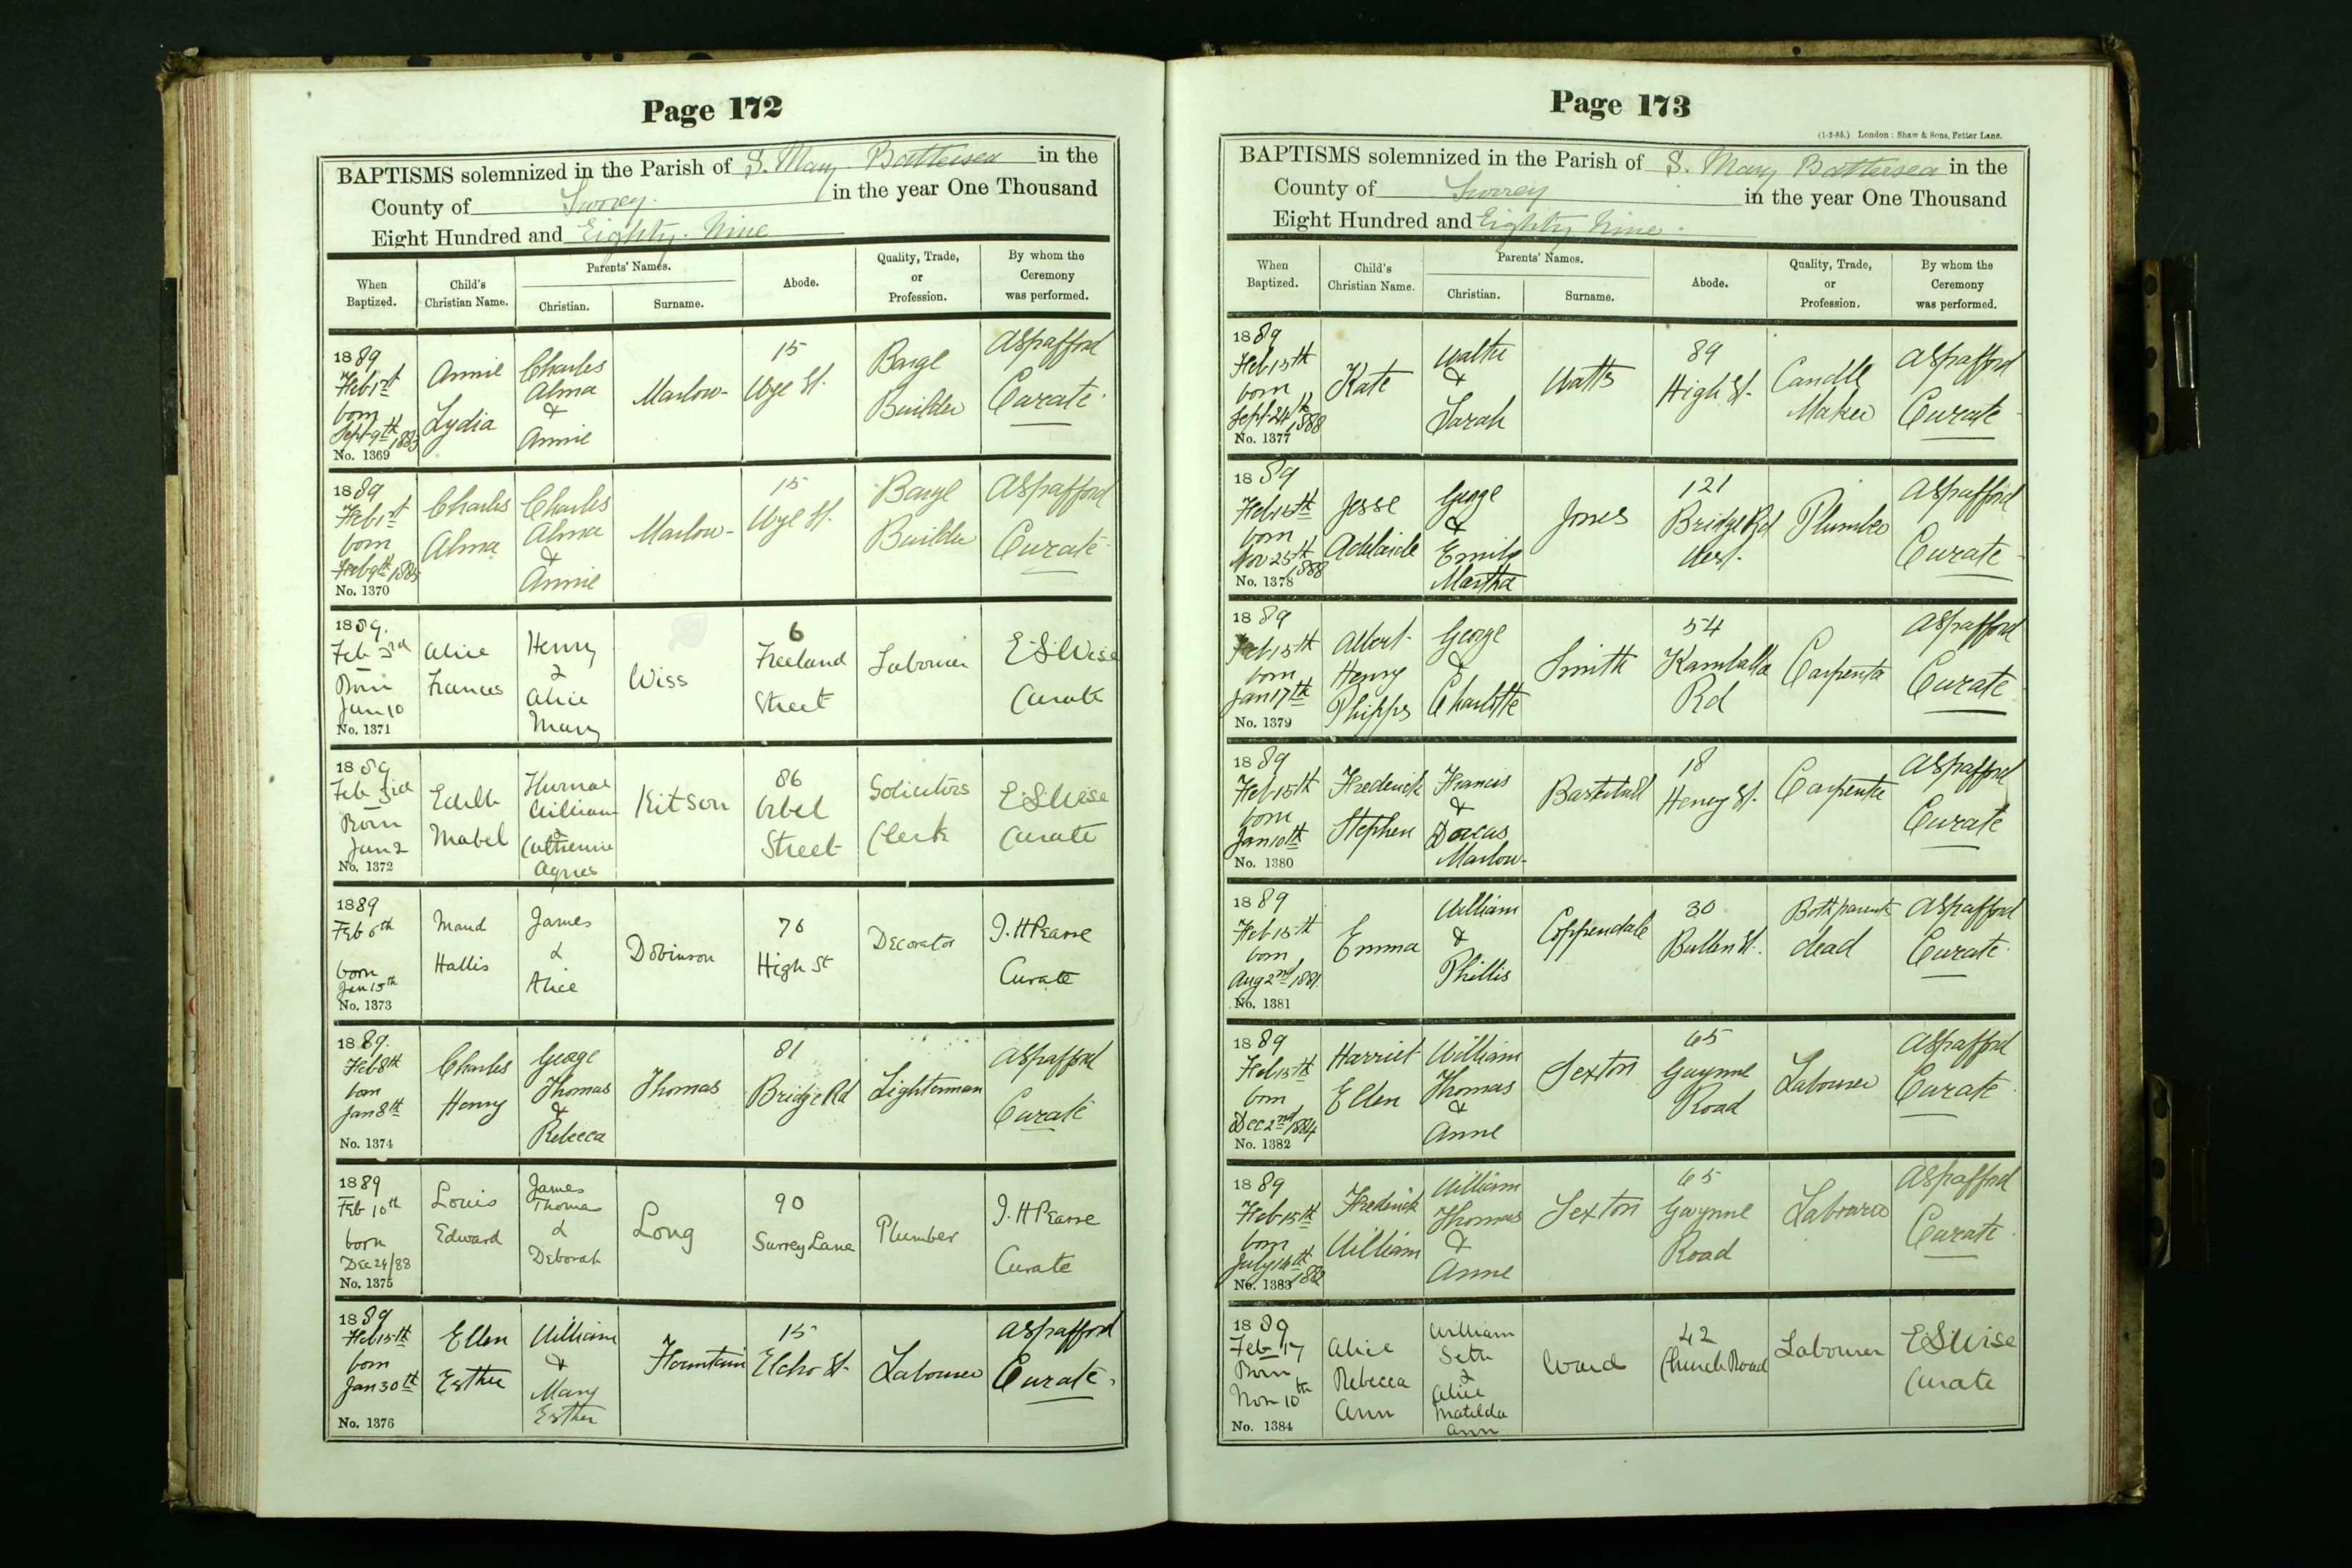 Page 172
BAPTISMS solemnized in the Parish of S. Mary Battersea in the
County of Surrey in the year One Thousand
Eight Hundred and Eighty. Nine
When Baptized. Child's Christian Name. Parents' Names. Christian. Surname. Abode. Quality, Trade, or Profession. By whom the Ceremony was performed.
1889
Feb 1st
born
Sept 9th 1883
No. 1369
Annie
Lydia
Charles
Alma
&
Annie
Marlow
15
Wye St.
Barge
Builder
A Spafford
Curate
1889
Feb 1st
born
Feb 9th 1885
No. 1370
Charles
Alma
Charles
Alma
&
Annie
Marlow
15
Wye St.
Barge
Builder
A Spafford
Curate
1889.
Feb 3rd
Born
Jan 10
No. 1371
Alice
Frances
Henry
&
Alice
Mary
Wiss
6
Freeland
Street
Labourer
E S Wise
Curate
1889
Feb 3rd
Born
Jan 2
No. 1372
Edith
Mabel
Thomas
William
&
Catherine
Agnes
Kitson
86
Orbel
Street
Solicitors
Clerk
E S Wise
Curate
1889
Feb 6th
born
Jan 15th
No. 1373
Maud
Hallis
James
&
Alice
Dobinson
76
High St
Decorator
J. H Pearse
Curate
1889.
Feb 8th
born
Jan 8th
No. 1374
Charles
Henry
George
Thomas
&
Rebecca
Thomas
81
Bridge Rd
Lighterman
A Spafford
Curate
1889
Feb 10th
born
Dec 24/88
No. 1375
Louis
Edward
James
Thomas
&
Deborah
Long
90
Surrey Lane
Plumber
J. H Pearse
Curate
1889
Feb 15th
born
Jan 30th
No. 1376
Ellen
Esther
William
&
Mary
Esther
Fountain
15
Elcho St.
Labourer
A Spafford
Curate.
Page 173
(1-2-85.) London: Shaw & Sons, Fetter Lane.
BAPTISMS solemnized in the Parish of S. Mary Battersea in the
County of Surrey in the year One Thousand
Eight Hundred and Eighty Nine.
When Baptized. Child's Christian Name. Parents' Names. Christian. Surname. Abode. Quality, Trade, or Profession. By whom the Ceremony was performed.
1889
Feb 15th
born
Sept 24th 1888
No. 1377
Kate
Walter
&
Sarah
Watts
89
High St.
Candle
Maker
A Spafford
Curate
1889
Feb 15th
born
Nov 25th 1888
No. 1378
Jesse
Adelaide
George
&
Emily
Martha
Jones
121
Bridge Rd
West.
Plumber
A Spafford
Curate
1889
Feb 15th
born
Jan 17th
No. 1379
Albert
Henry
Phipps
George
&
Charlotte
Smith
54
Kamballa
Rd
Carpenter
A Spafford
Curate
1889
Feb 15th
born
Jan 10th
No. 1380
Frederick
Stephen
Francis
&
Dorcas
Marlow
18
Henry St.
Carpenter
A Spafford
Curate
1889
Feb 15th
born
Aug 2nd 1881.
No. 1381
Emma
William
&
Phillis
Coppendale
30
Bullen St.
Both parents
dead
A Spafford
Curate
1889
Feb 15th
born
Dec 2nd 1884
No. 1382
Harriet
Ellen
William
Thomas
&
Anne
Sexton
65
Gwynne
Road
Labourer
A Spafford
Curate
1889
Feb 15th
born
July 14th 1882
No. 1383
Frederick
William
William
Thomas
&
Anne
Sexton
65
Gwynne
Road
Labourer
A Spafford
Curate
1889
Feb 17
Born
Nov 10th
No. 1384
Alice
Rebecca
Ann
William
Seth
&
Alice
Matilda
Ann
Ward
42
Church Road
Labourer
E S Wise
Curate